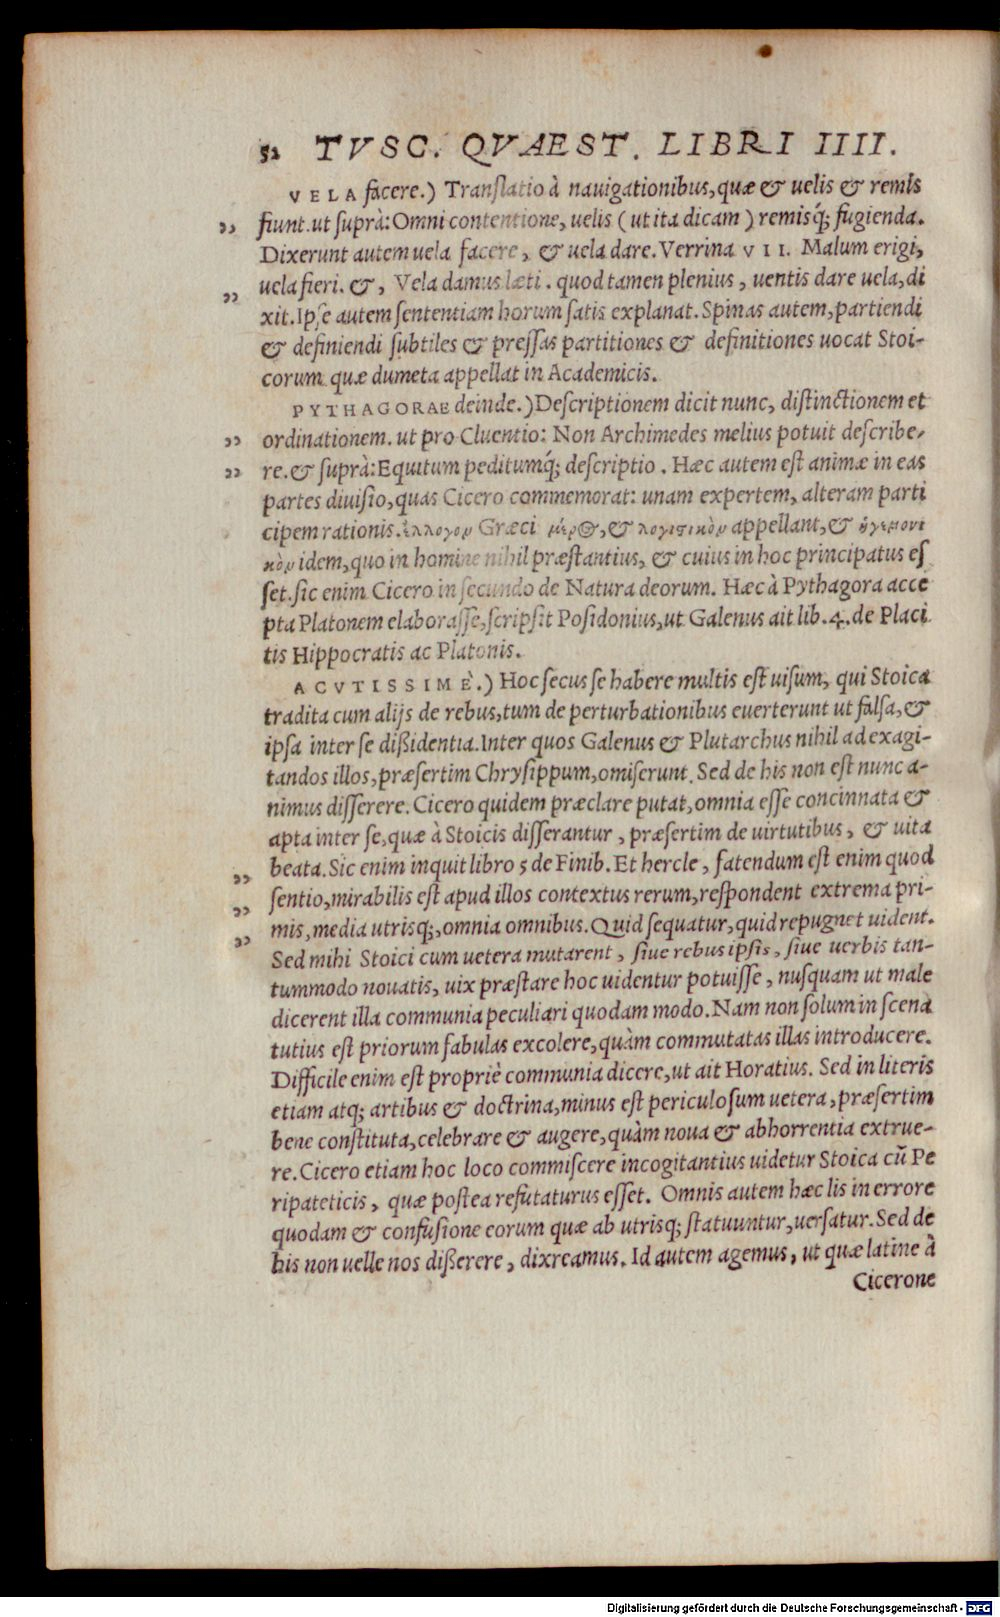 52 TVSC. QVAEST. LIBRI IIII.
VELA facere.) Translatio à nauigationibus, quæ & uelis & remis
„ fiunt. ut suprà: Omni contentione, uelis (ut ita dicam) remisq́; fugienda.
Dixerunt autem uela facere, & uela dare. Verrina VII. Malum erigi,
„ uela fieri. &, Vela damus læti. quod tamen plenius, uentis dare uela, di
xit. Ipse autem sententiam horum satis explanat. Spinas autem, partiendi
& definiendi subtiles & pressas partitiones & definitiones uocat Stoi-
corum quæ dumeta appellat in Academicis.
PYTHAGORAE deinde.) Descriptionem dicit nunc, distinctionem et
„ ordinationem. ut pro Cluentio: Non Archimedes melius potuit describe-
„ re. & suprà: Equitum peditumq́; descriptio. Hæc autem est animæ in eas
partes diuisio, quas Cicero commemorat: unam expertem, alteram parti
cipem rationis. ἔλλογον Græci μέρος, & λογιστικὸν appellant, & ἡγεμονι
κὸν idem, quo in homine nihil præstantius, & cuius in hoc principatus es
set. sic enim Cicero in secundo de Natura deorum. Hæc à Pythagora acce
pta Platonem elaborasse, scripsit Posidonius, ut Galenus ait lib. 4. de Placi
tis Hippocratis ac Platonis.
ACVTISSIMÈ.) Hoc secus se habere multis est uisum, qui Stoica
tradita cum alijs de rebus, tum de perturbationibus euerterunt ut falsa, &
ipsa inter se dißidentia. Inter quos Galenus & Plutarchus nihil ad exagi-
tandos illos, præsertim Chrysippum, omiserunt. Sed de his non est nunc a-
nimus disserere. Cicero quidem præclare putat, omnia esse concinnata &
apta inter se, quæ à Stoicis disserantur, præsertim de uirtutibus, & uita
„ beata. Sic enim inquit libro 5 de Finib. Et hercle, fatendum est enim quod
„ sentio, mirabilis est apud illos contextus rerum, respondent extrema pri-
„ mis, media utrisq;, omnia omnibus. Quid sequatur, quid repugnet uident.
Sed mihi Stoici cum uetera mutarent, siue rebus ipsis, siue uerbis tan-
tummodo nouatis, uix præstare hoc uidentur potuisse, nusquam ut male
dicerent illa communia peculiari quodam modo. Nam non solum in scena
tutius est priorum fabulas excolere, quàm commutatas illas introducere.
Difficile enim est propriè communia dicere, ut ait Horatius. Sed in literis
etiam atq; artibus & doctrina, minus est periculosum uetera, præsertim
bene constituta, celebrare & augere, quàm noua & abhorrentia extrue-
re. Cicero etiam hoc loco commiscere incogitantius uidetur Stoica cũ Pe
ripateticis, quæ postea refutaturus esset. Omnis autem hæc lis in errore
quodam & confusione eorum quæ ab utrisq; statuuntur, uersatur. Sed de
his non uelle nos dißerere, dixreamus. Id autem agemus, ut quæ latine à
Cicerone
Digitalisierung gefördert durch die Deutsche Forschungsgemeinschaft - DFG